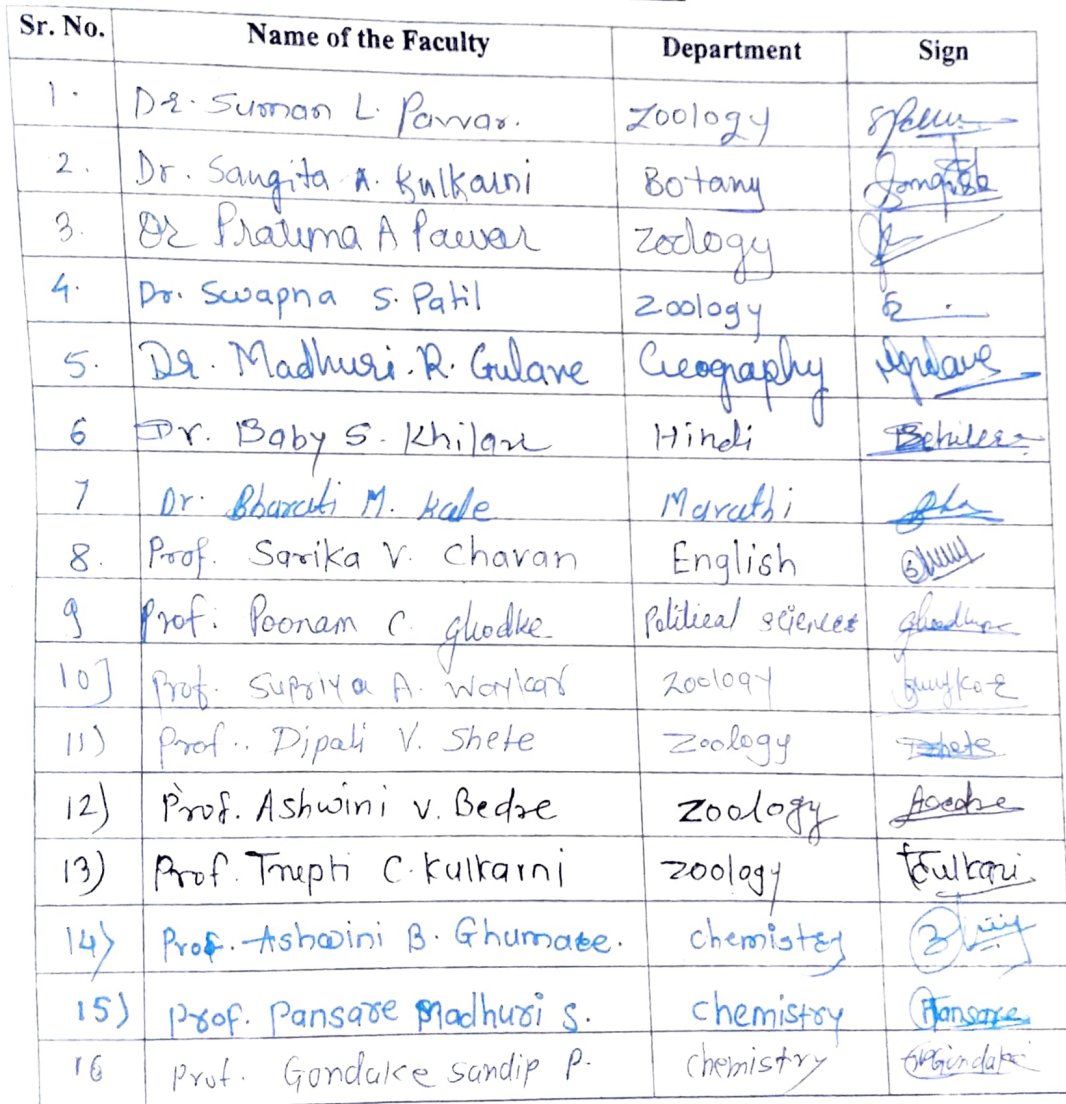 Sr. No. Name of the Faculty Department Sign
1. Dr. Suman L. Pawar. Zoology
2. Dr. Sangita A. Kulkarni Botany
3. Dr Pratima A Pawar Zoology
4. Dr. Swapna S. Patil Zoology
5. Dr. Madhuri. R. Gulave Geography
6 Dr. Baby S. Khilare Hindi
7 Dr. Bharati M. Kale Marathi
8. Prof. Sarika V. Chavan English
9 Prof. Poonam C. Ghodke Political sciences
10] Prof. Supriya A. Waykar Zoology
11) Prof.. Dipali V. Shete Zoology Shete
12) Prof. Ashwini V. Bedre Zoology
13) Prof. Trupti C. Kulkarni Zoology
14) Prof. Ashwini B. Ghumare. chemistry
15) Prof. Pansare Madhuri S. chemistry Pansare
16 Prof. Gondake Sandip P. chemistry